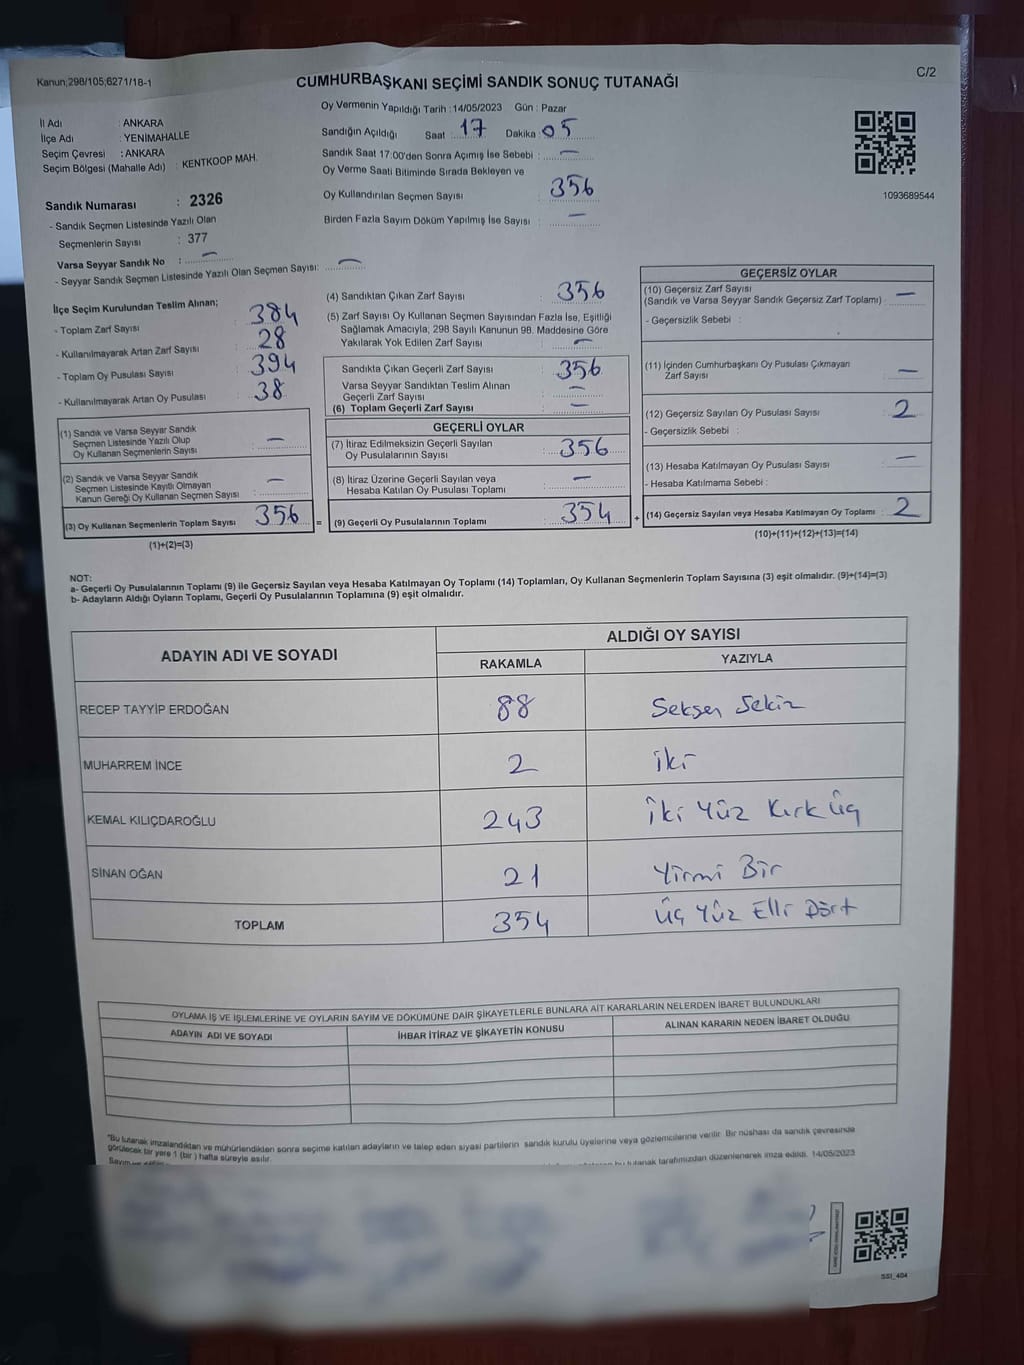 Kanun;298/105;6271/18-1
CUMHURBAŞKANI SEÇİMİ SANDIK SONUÇ TUTANAĞI
C/2
İl Adı : ANKARA
İlçe Adı : YENİMAHALLE
Seçim Çevresi : ANKARA
Seçim Bölgesi (Mahalle Adı) : KENTKOOP MAH.
Sandık Numarası : 2326
- Sandık Seçmen Listesinde Yazılı Olan
Seçmenlerin Sayısı : 377
Varsa Seyyar Sandık No : —
- Seyyar Sandık Seçmen Listesinde Yazılı Olan Seçmen Sayısı: —
Oy Vermenin Yapıldığı Tarih : 14/05/2023 Gün : Pazar
Sandığın Açıldığı Saat : 17 Dakika : 05
Sandık Saat 17:00'den Sonra Açımış İse Sebebi : —
Oy Verme Saati Bitiminde Sırada Bekleyen ve
Oy Kullandırılan Seçmen Sayısı : 356
Birden Fazla Sayım Döküm Yapılmış İse Sayısı : —
1093689544
İlçe Seçim Kurulundan Teslim Alınan;
- Toplam Zarf Sayısı : 384
- Kullanılmayarak Artan Zarf Sayısı : 28
- Toplam Oy Pusulası Sayısı : 394
- Kullanılmayarak Artan Oy Pusulası : 38
(1) Sandık ve Varsa Seyyar Sandık
Seçmen Listesinde Yazılı Olup
Oy Kullanan Seçmenlerin Sayısı : —
(2) Sandık ve Varsa Seyyar Sandık
Seçmen Listesinde Kayıtlı Olmayan
Kanun Gereği Oy Kullanan Seçmen Sayısı : —
(3) Oy Kullanan Seçmenlerin Toplam Sayısı 356 =
(1)+(2)=(3)
(4) Sandıktan Çıkan Zarf Sayısı : 356
(5) Zarf Sayısı Oy Kullanan Seçmen Sayısından Fazla İse, Eşitliği
Sağlamak Amacıyla, 298 Sayılı Kanunun 98. Maddesine Göre
Yakılarak Yok Edilen Zarf Sayısı : —
Sandıkta Çıkan Geçerli Zarf Sayısı : 356
Varsa Seyyar Sandıktan Teslim Alınan
Geçerli Zarf Sayısı : —
(6) Toplam Geçerli Zarf Sayısı : —
GEÇERLİ OYLAR
(7) İtiraz Edilmeksizin Geçerli Sayılan
Oy Pusulalarının Sayısı : 356
(8) İtiraz Üzerine Geçerli Sayılan veya
Hesaba Katılan Oy Pusulası Toplamı : —
(9) Geçerli Oy Pusulalarının Toplamı : 354 +
GEÇERSİZ OYLAR
(10) Geçersiz Zarf Sayısı
(Sandık ve Varsa Seyyar Sandık Geçersiz Zarf Toplamı) : —
- Geçersizlik Sebebi :
(11) İçinden Cumhurbaşkanı Oy Pusulası Çıkmayan
Zarf Sayısı : —
(12) Geçersiz Sayılan Oy Pusulası Sayısı : 2
- Geçersizlik Sebebi :
(13) Hesaba Katılmayan Oy Pusulası Sayısı : —
- Hesaba Katılmama Sebebi :
(14) Geçersiz Sayılan veya Hesaba Katılmayan Oy Toplamı : 2
(10)+(11)+(12)+(13)=(14)
NOT:
a- Geçerli Oy Pusulalarının Toplamı (9) ile Geçersiz Sayılan veya Hesaba Katılmayan Oy Toplamı (14) Toplamları, Oy Kullanan Seçmenlerin Toplam Sayısına (3) eşit olmalıdır. (9)+(14)=(3)
b- Adayların Aldığı Oyların Toplamı, Geçerli Oy Pusulalarının Toplamına (9) eşit olmalıdır.
ADAYIN ADI VE SOYADI
ALDIĞI OY SAYISI
RAKAMLA YAZIYLA
RECEP TAYYİP ERDOĞAN 88 Seksen Sekiz
MUHARREM İNCE 2 iki
KEMAL KILIÇDAROĞLU 243 iki Yüz Kırk üç
SİNAN OĞAN 21 Yirmi Bir
TOPLAM 354 üç Yüz Elli Dört
OYLAMA İŞ VE İŞLEMLERİNE VE OYLARIN SAYIM VE DÖKÜMÜNE DAİR ŞİKAYETLERLE BUNLARA AİT KARARLARIN NELERDEN İBARET BULUNDUKLARI
ADAYIN ADI VE SOYADI İHBAR İTİRAZ VE ŞİKAYETİN KONUSU ALINAN KARARIN NEDEN İBARET OLDUĞU
"Bu tutanak imzalandıktan ve mühürlendikten sonra seçime katılan adayların ve talep eden siyasi partilerin sandık kurulu üyelerine veya gözlemcilerine verilir. Bir nüshası da sandık çevresinde
görülecek bir yere 1 (bir ) hafta süreyle asılır.
bu tutanak tarafımızdan düzenlenerek imza edildi. 14/05/2023
SSI_404